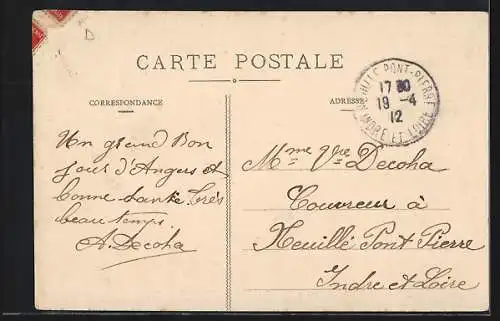 D
CARTE POSTALE
CORRESPONDANCE
ADRESSE
NEUILLE PONT-PIERRE
17 30
19 -4
12
INDRE ET LOIRE
Un grand Bon
jour d'Angers et
bonne santé. Très
beau temps.
A. Decoha
Mme Vve Decoha
Couvreur à
Neuillé Pont Pierre
Indre et Loire